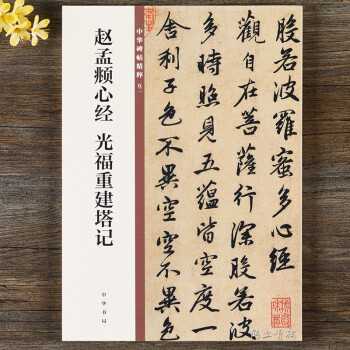 赵孟頫心经 光福重建塔记
中华书局
中华碑帖精粹
般若波羅蜜多心經
觀自在菩薩行深般若波
羅蜜多時照見五蘊皆空度一
舍利子色不異空空不異色